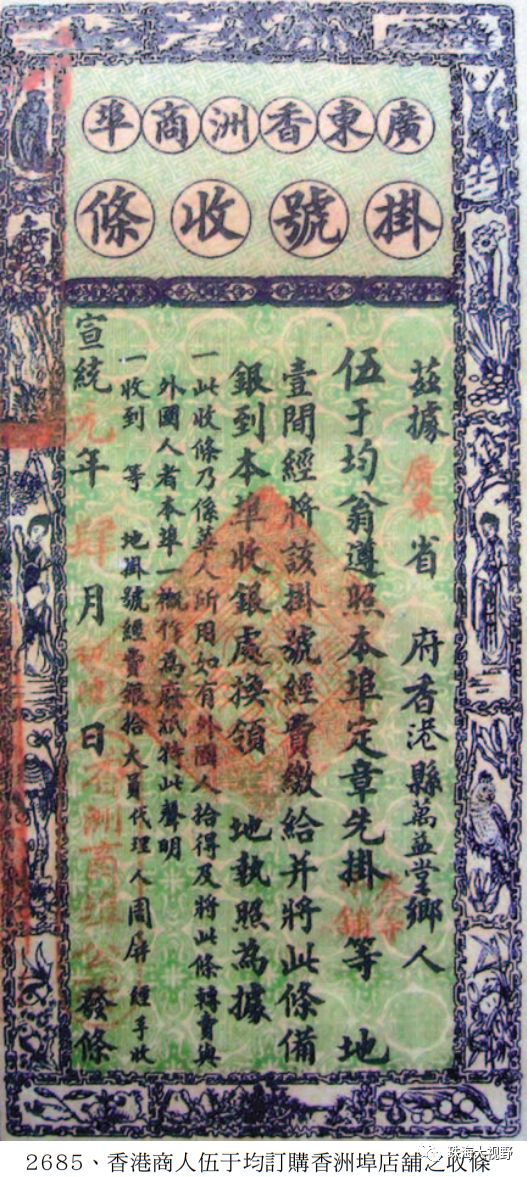 廣東香洲商埠
掛號收條
茲據廣東省 府香港縣萬益堂鄉人
伍于均翁遵照本埠定章先掛 等 地
壹間經將該掛號經費繳給并將此條備
銀到本埠收銀處換領 地執照為據
一此收條乃係華人所用如有外國人拾得及將此條轉賣與
外國人者本埠一概作為廢紙特此聲明
一收到 等 地掛號經費銀拾大員代理人周屏 經手收
宣統元年肆月 日 發條
2685、香港商人伍于均訂購香洲埠店舖之收條
珠海大视野